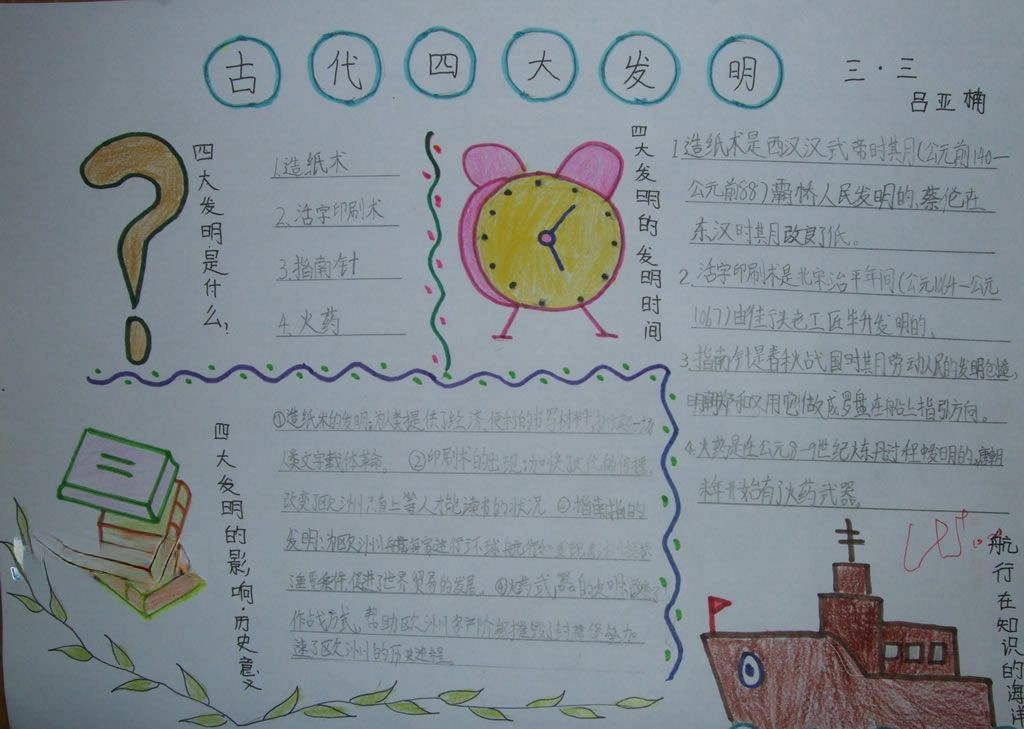 古代四大发明
三·三
吕亚楠
四大发明是什么?
1.造纸术
2.活字印刷术
3.指南针
4.火药
四大发明的发明时间
1造纸术是西汉汉武帝时其月(公元前140一
公元前88)灞桥人民发明的、蔡伦在
东汉时其月改良了低。
2.活字印刷术是北宋治平年间(公元1064一公元
1067)由隹丁头老工匠毕升发明的。
3.指南针是春秋战国时其月劳动人民的发明
和又用它做成罗盘在船上指引方向。
4.火药是在公元8一9世纪火东丹过程中发明的,唐朝
末年开始有了火药武器。
四大发明的影响·历史意义
①造纸术的发明:为人类提供了经济、便利的书写材料,
人类文字载体革命。②印刷术的出现:加快了文化的传播,
改变了欧洲只有上等人才能读书的状况 ③指南指的
发明:为欧洲航海家进行环球航行和发现
重要条件,促进了世界贸易的发展。④火药武器的发明
作战方式,帮助欧洲资产阶级摧毁封建保垒,加
速了欧洲的历史进程。
航行在知识的海洋